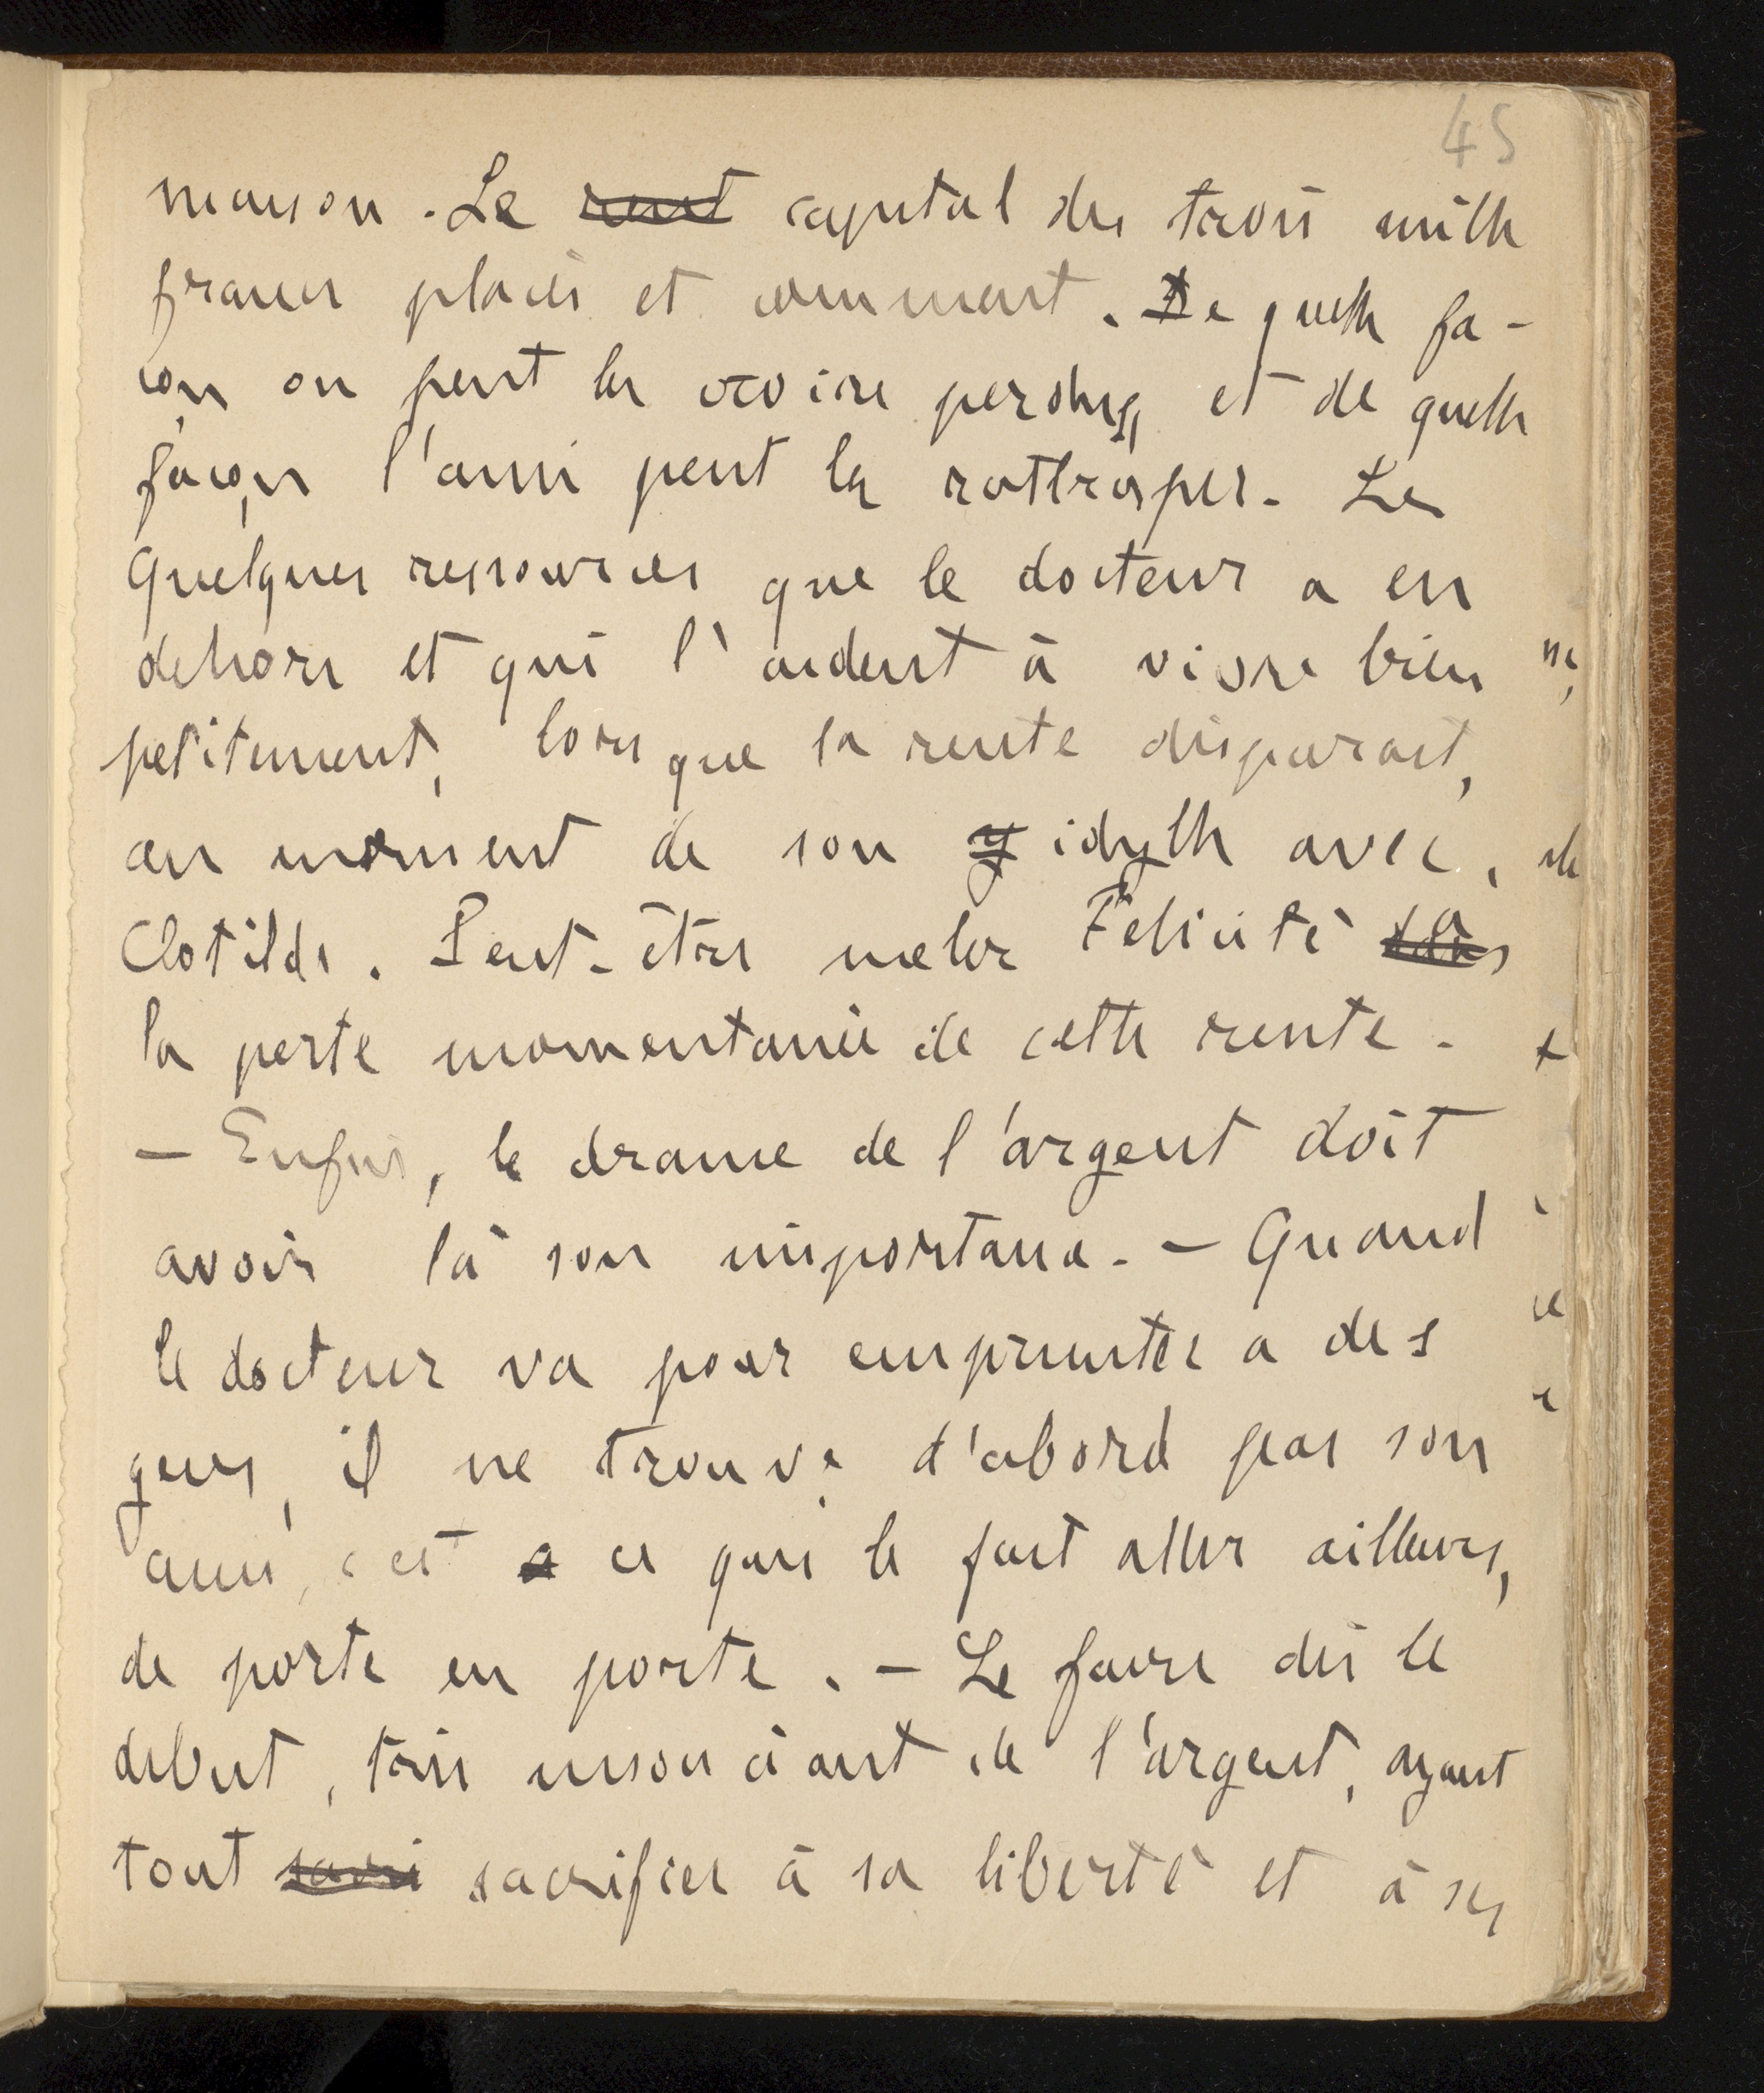 45
maison. Le rent capital des trois mille
francs placés et comment. De quelle fa-
çon on peut les croire perdus, et de quelle
façon l'ami peut les rattraper. Les
quelques ressources que le docteur a en
dehors et qui l'aident à vivre bien
petitement, lorsque la rente disparaît,
au moment de son y idylle avec
Clotilde. Peut-être mêler Félicité
la perte momentanée de cette rente.
— Enfin, le drame de l'argent doit
avoir là son importance. — Quand
le docteur va pour emprunter à des
gens, il ne trouve d'abord pas son
ami, c'est a ce qui le fait aller ailleurs,
de porte en porte. — Le faire dès le
début, très insouciant de l'argent, ayant
tout sacri sacrifier à sa liberté et à ses